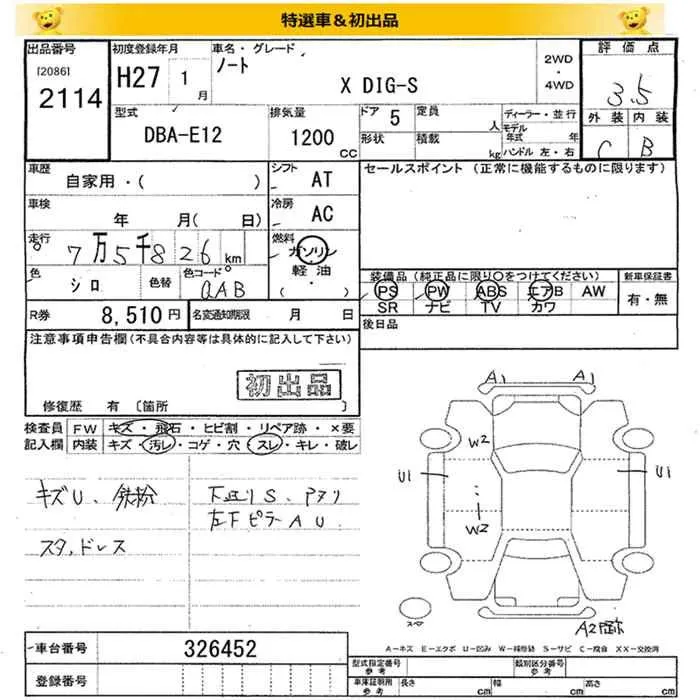 特選車＆初出品
出品番号
[2086]
2114
初度登録年月
H27 1月
車名・グレード
ノート
X DIG-S
2WD
・
4WD
評価点
3.5
外装 内装
C B
型式
DBA-E12
排気量
1200 CC
ドア 5
定員 人
形状
積載 kg
ディーラー・並行
モデル年式 年
ハンドル 左・右
車歴
自家用・( )
シフト AT
セールスポイント (正常に機能するものに限ります)
車検
年 月( 日)
冷房 AC
走行
7万5千826km
燃料
ガソリン
軽油
( ・ )
色
シロ
色替
色コード
QAB
装備品 (純正品に限り○をつけてください)
新車保証書
PS PW ABS エアB AW
有・無
SR ナビ TV カワ
R券 8,510円
名変通知期限 月 日
後日品
注意事項申告欄(不具合内容等は具体的に記入して下さい)
初出品
修復歴 有 〔箇所
検査員 FW キズ・飛石・ヒビ割・リペア跡・×要
記入欄 内装 キズ・汚レ・コゲ・穴・スレ・キレ・破レ
キズU、鉄粉
スタッドレス
下廻りS、
左下ピラーAU
A1 A1
W2
U1 U1
W2
A2
車台番号 326452
登録番号
A－キズ E－エクボ U－凹み W－補修跡 S－サビ C－腐食 XX－交換済
型式指定番号 参考
類別区分番号 参考
車庫証明用 参考
長さ cm 幅 cm 高さ cm